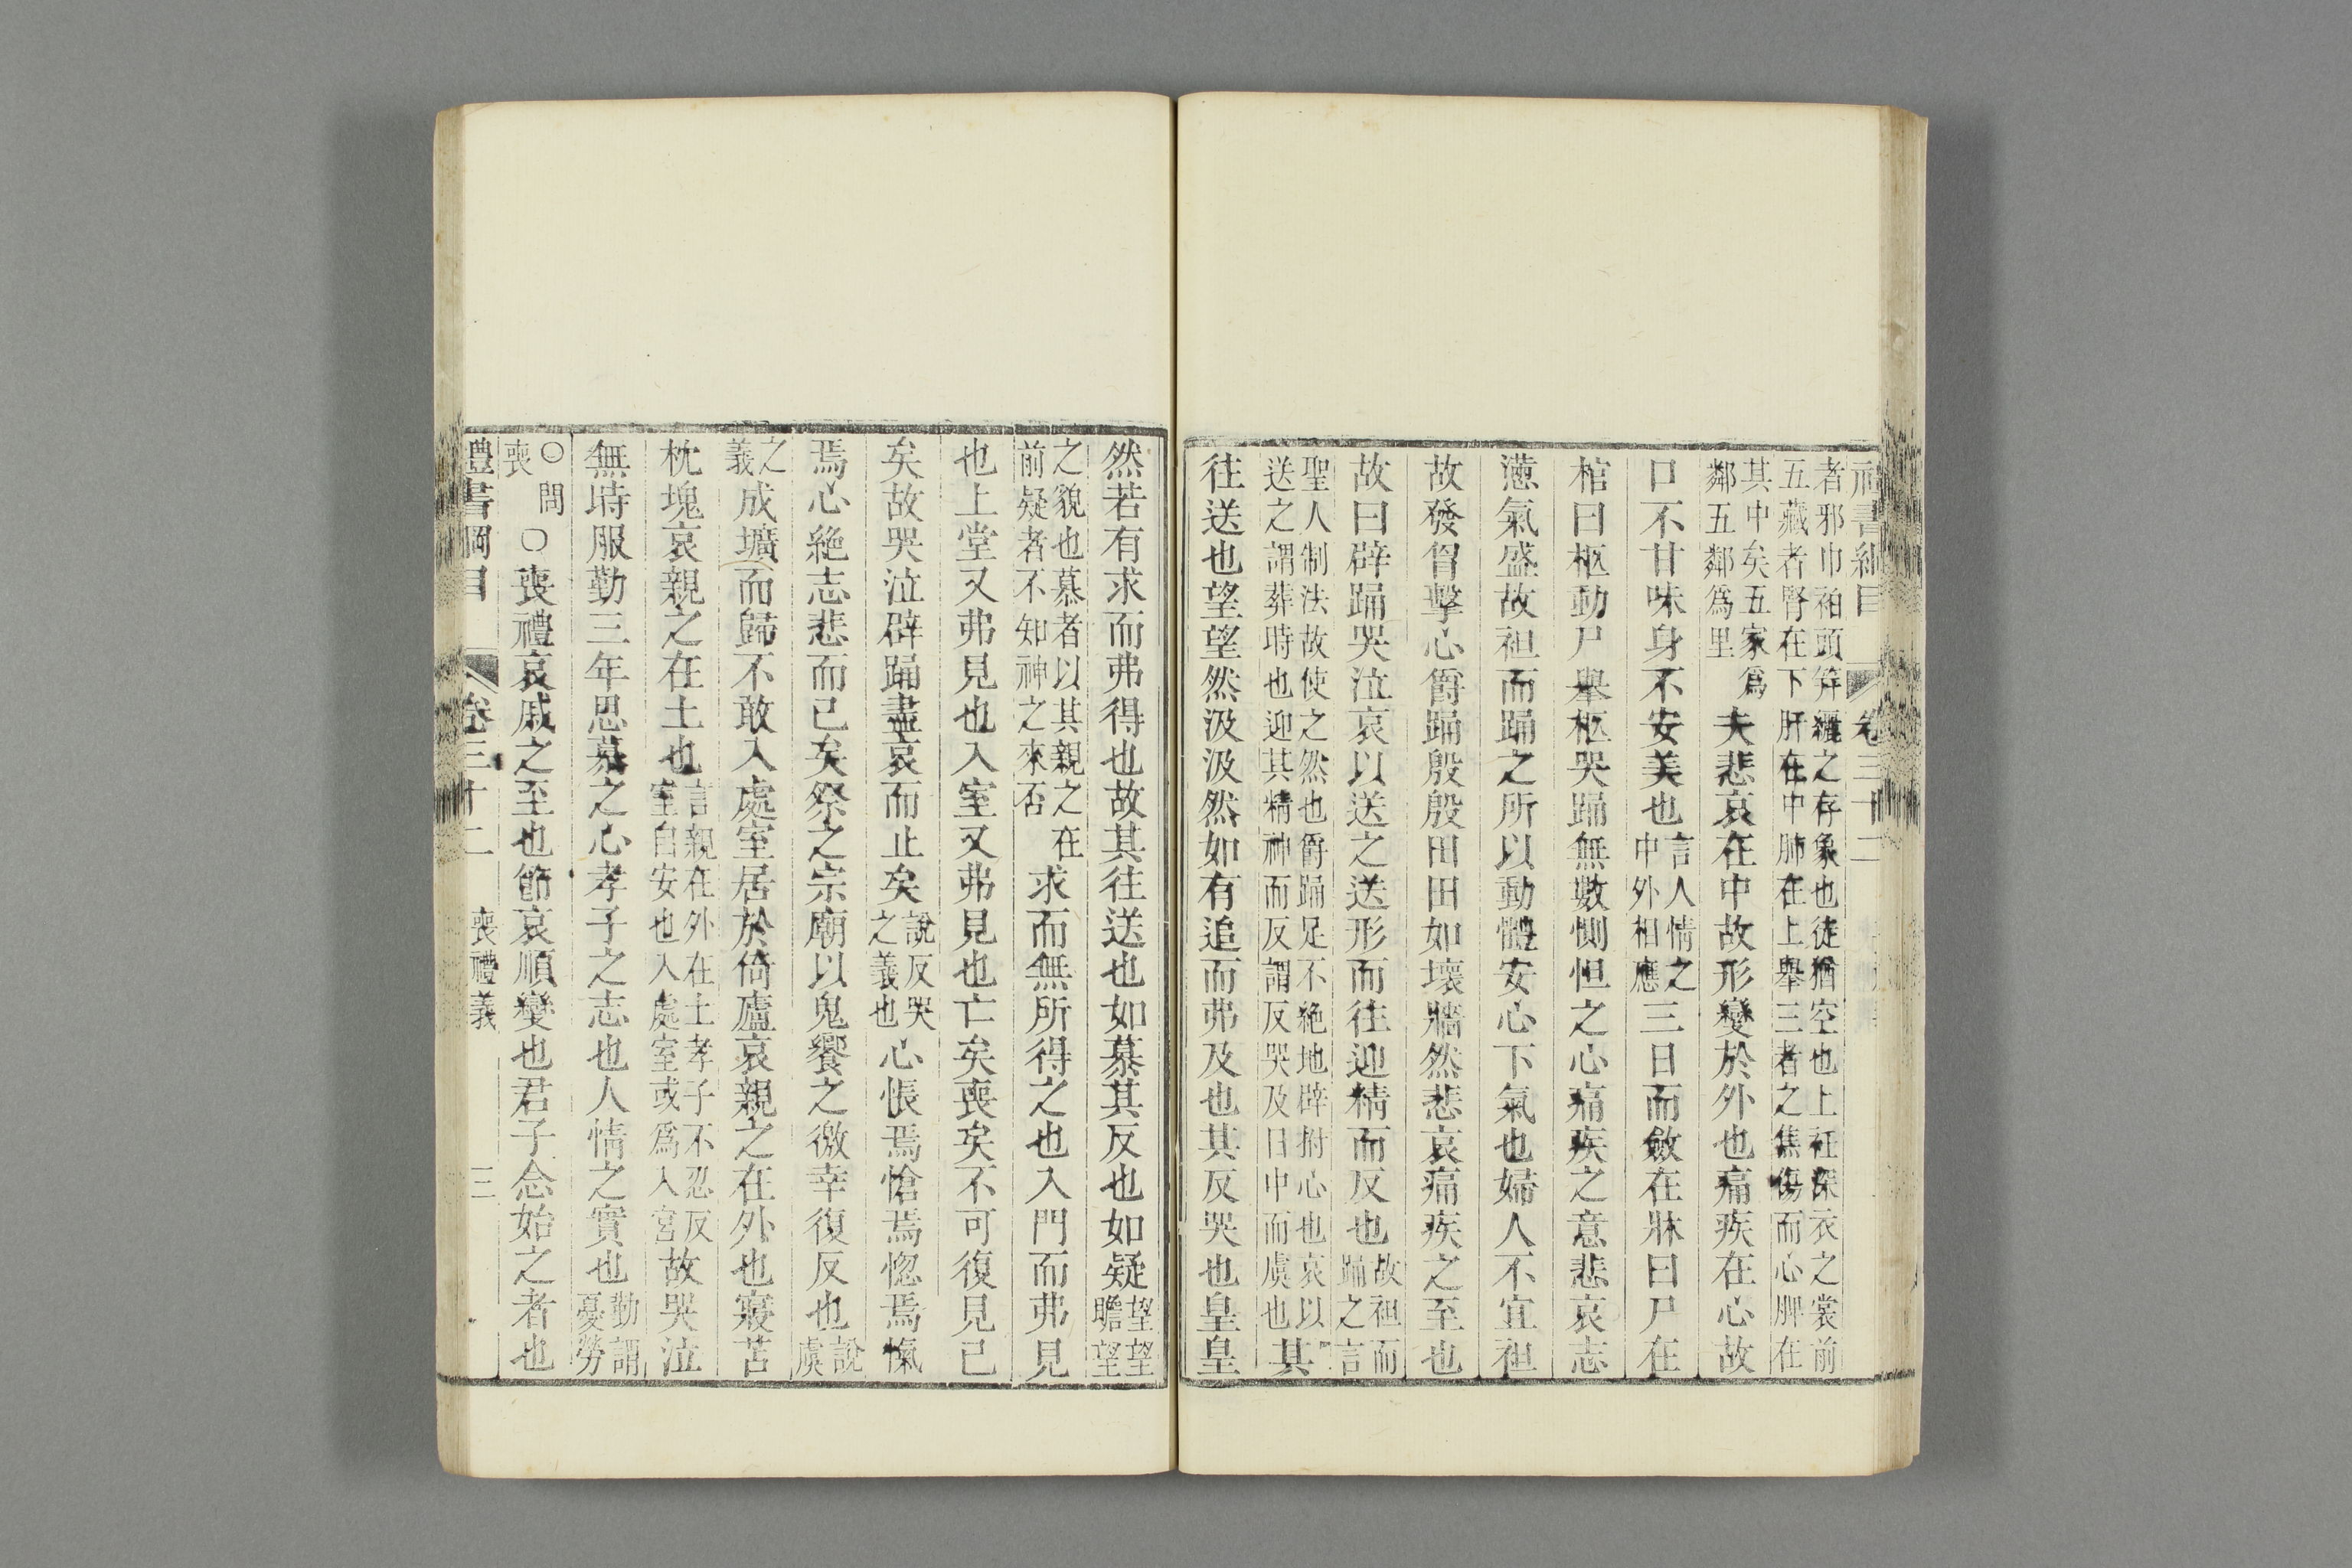 禮書綱目 卷三十二
者邪巾袙頭笄纚之存象也徒猶空也上衽深衣之裳前
五藏者腎在下肝在中肺在上舉三者之焦傷而心脾在
其中矣五家爲
鄰五鄰爲里
夫悲哀在中故形變於外也痛疾在心故
口不甘味身不安美也
言人情之
中外相應
三日而斂在牀曰尸在
棺曰柩動尸舉柩哭踊無數惻怛之心痛疾之意悲哀志
懣氣盛故袒而踊之所以動體安心下氣也婦人不宜袒
故發胷擊心爵踊殷殷田田如壞牆然悲哀痛疾之至也
故曰辟踊哭泣哀以送之送形而往迎精而反也
故袒而
踊之言
聖人制法故使之然也爵踊足不絶地辟拊心也哀以
送之謂葬時也迎其精神而反謂反哭及日中而虞也
其
往送也望望然汲汲然如有追而弗及也其反哭也皇皇
然若有求而弗得也故其往送也如慕其反也如疑
望望
瞻望
之貌也慕者以其親之在
前疑者不知神之來否
求而無所得之也入門而弗見
也上堂又弗見也入室又弗見也亡矣喪矣不可復見已
矣故哭泣辟踊盡哀而止矣
說反哭
之義也
心悵焉愴焉惚焉愾
焉心絶志悲而已矣祭之宗廟以鬼饗之徼幸復反也
說
虞
之
義
成壙而歸不敢入處室居於倚廬哀親之在外也寢苫
枕塊哀親之在土也
言親在外在土孝子不忍反
室自安也入處室或爲入宮
故哭泣
無時服勤三年思慕之心孝子之志也人情之實也
勤謂
憂勞
○問
喪
○喪禮哀戚之至也節哀順變也君子念始之者也
禮書綱目 卷三十二 喪禮義 三